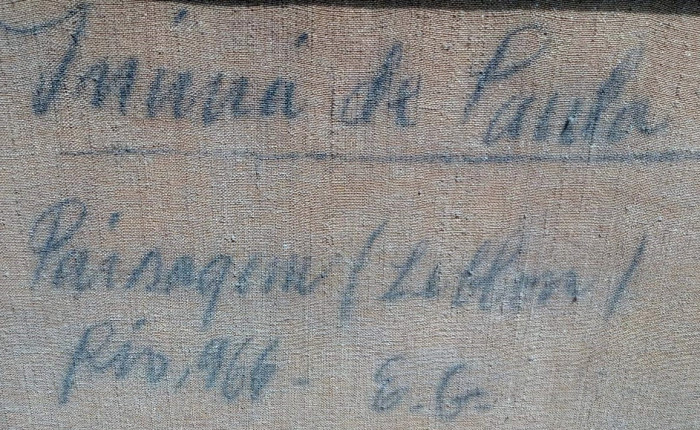 Inimá de Paula
Paisagem (Leblon)
Rio, 966 - E. G.